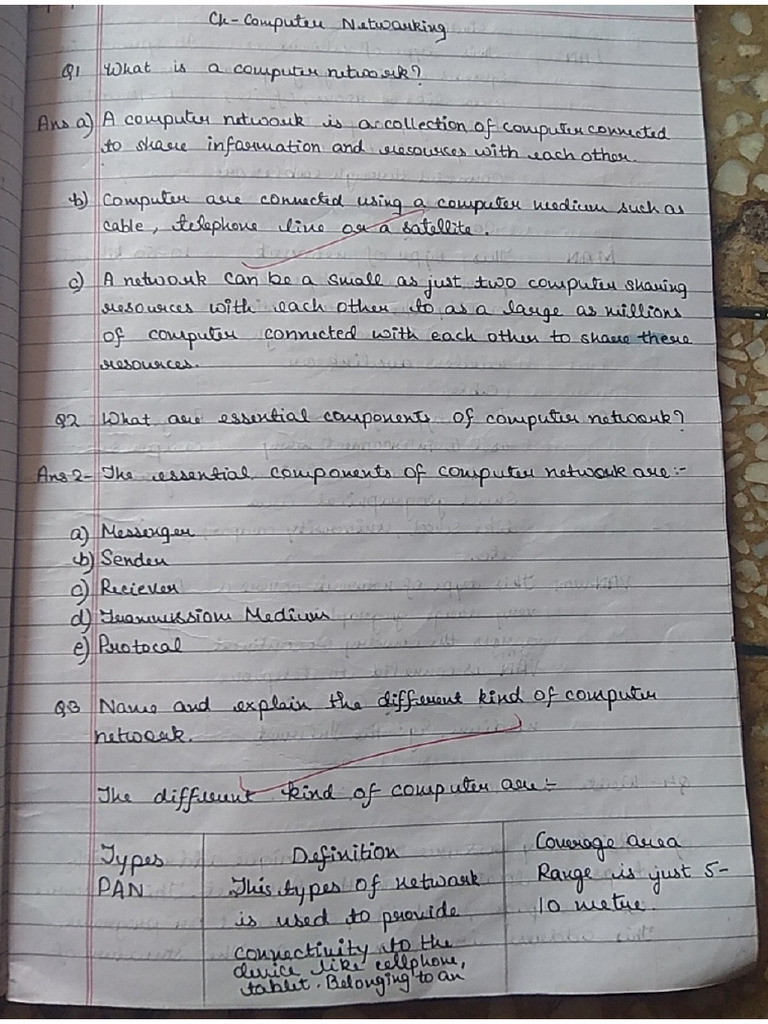 Ch-Computer Networking
Q1 What is a computer network?
Ans a) A computer network is a collection of computer connected
to share information and resources with each other.
b) Computer are connected using a computer medium such as
cable, telephone line or a satellite.
c) A network can be a small as just two computer sharing
resources with each other to as a large as millions
of computer connected with each other to share there
resources.
Q2 What are essential components of computer network?
Ans 2- The essential components of computer network are:-
a) Messenger
b) Sender
c) Reciever
d) Transmission Medium
e) Protocal
Q3 Name and explain the different kind of computer
network.
The different kind of computer are:-
Types Definition Coverage area
PAN This types of network Range is just 5-
is used to provide 10 metre.
connectivity to the
device like cellphone,
tablet. Belonging to an